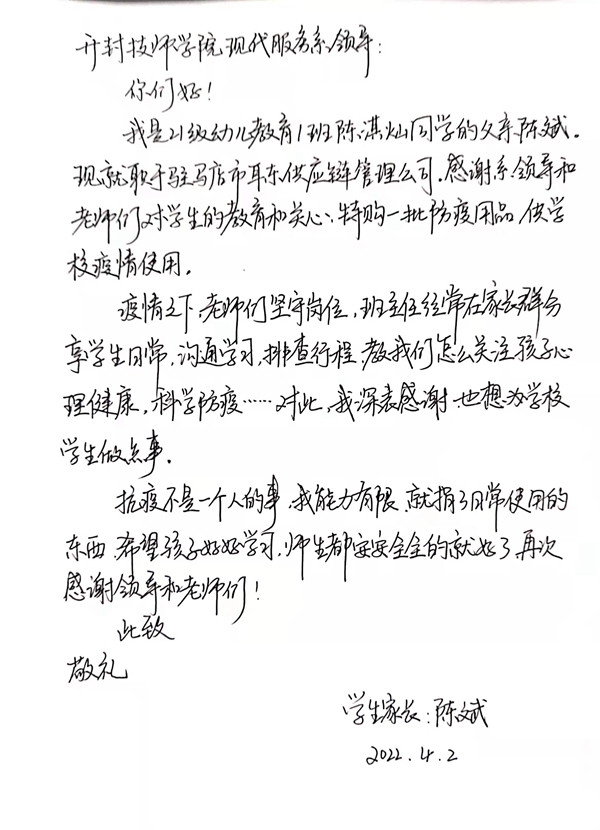 开封技师学院现代服务系领导:
你们好!
我是21级幼儿教育1班陈淇灿同学的父亲陈斌.
现就职于驻马店市耳东供应链管理公司.感谢系领导和
老师们对学生的教育和关心、特购一批防疫用品,供学
校疫情使用.
疫情之下,老师们坚守岗位,班主任经常在家长群分
享学生日常,沟通学习,排查行程,教我们怎么关注孩子心
理健康,科学防疫……对此,我深表感谢,也想为学校
学生做点事.
抗疫不是一个人的事,我能力有限,就捐了日常使用的
东西,希望孩子好好学习,师生都安安全全的就好了,再次
感谢领导和老师们!
此致
敬礼
学生家长:陈斌
2022.4.2